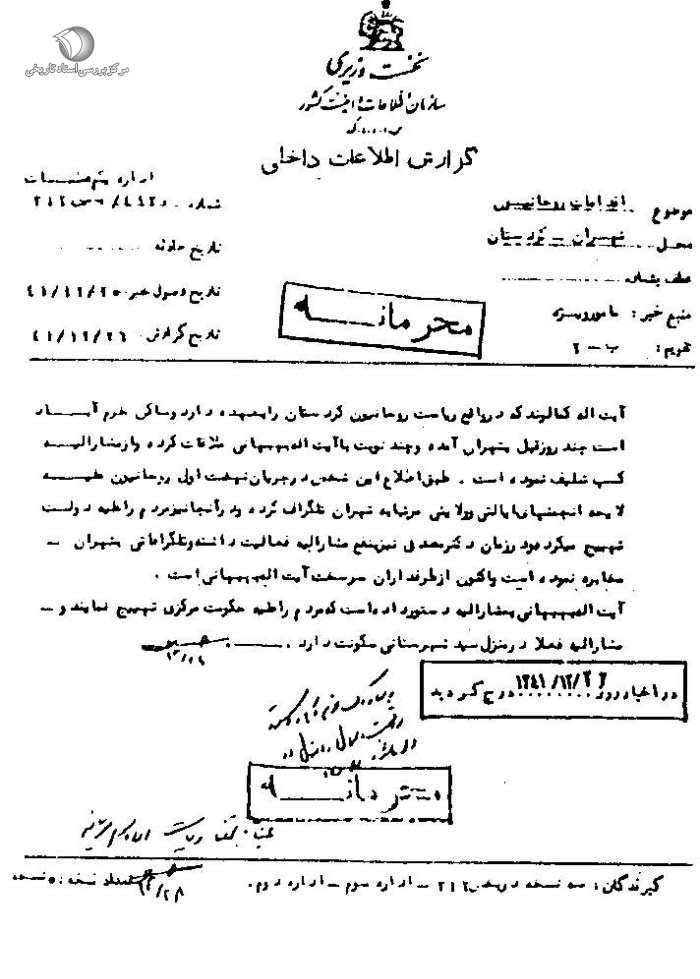 مرکز بررسی اسناد تاریخی
نخست وزیری
سازمان اطلاعات و امنیت کشور
گزارش اطلاعات داخلی
موضوع اقدامات روحانیون
محل تهران - کردستان
عطف بشماره
منبع خبر: مامور ویژه
تقویم: ب - ۲
شماره
تاریخ حادثه
تاریخ وصول خبر ۴۱/۱۲/۲۵
تاریخ گزارش ۴۱/۱۲/۲۶
محرمانه
آیت اله کمالوند که در واقع ریاست روحانیون کردستان را بعهده دارد و ساکن خرم آباد
است چند روز قبل بتهران آمده و چند نوبت با آیت اله بهبهانی ملاقات کرده و از مشارالیه
کسب تکلیف نموده است . طبق اطلاع این شخص در جریان نهضت اولی روحانیون علیه
لایحه انجمنهای ایالتی و ولایتی مرتبا به تهران تلگراف کرده و در آنجا نیز مردم را علیه دولت
تهییج میکرد و در زمان دکتر مصدق نیز بنفع مشارالیه فعالیت داشته و تلگرافاتی بتهران -
مخابره نموده است و اکنون از طرفداران سرسخت آیت اله بهبهانی است .
آیت اله بهبهانی بمشارالیه دستور داده است که مردم را علیه حکومت مرکزی تهییج نمایند و -
مشارالیه فعلا در منزل سید شهرستانی سکونت دارد .
در اخبار روز ۱۳۴۱/۱۲/ درج گردید
محرمانه
گیرندگان: سه نسخه در بخش ۲۱۲ - اداره سوم - اداره دوم .
تعداد نسخه: ۵ نسخه
۱۲/۲۸